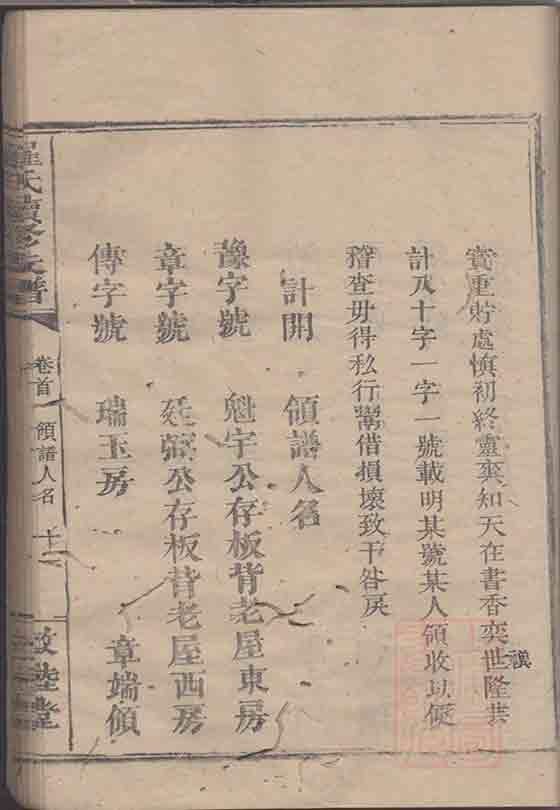 寶重貯處慎初終靈爽知天在書香奕世隆共
計八十字一字一號載明某號某人領收以便
稽查毋得私行鬻借損壞致干咎戾
計開 領譜人名
豫字號 魁宇公存板背老屋東房
章字號 廷弼公存板背老屋西房
傳字號 瑞玉房 章端領
羅氏續修族譜
卷首 領譜人名 十二
敦睦堂